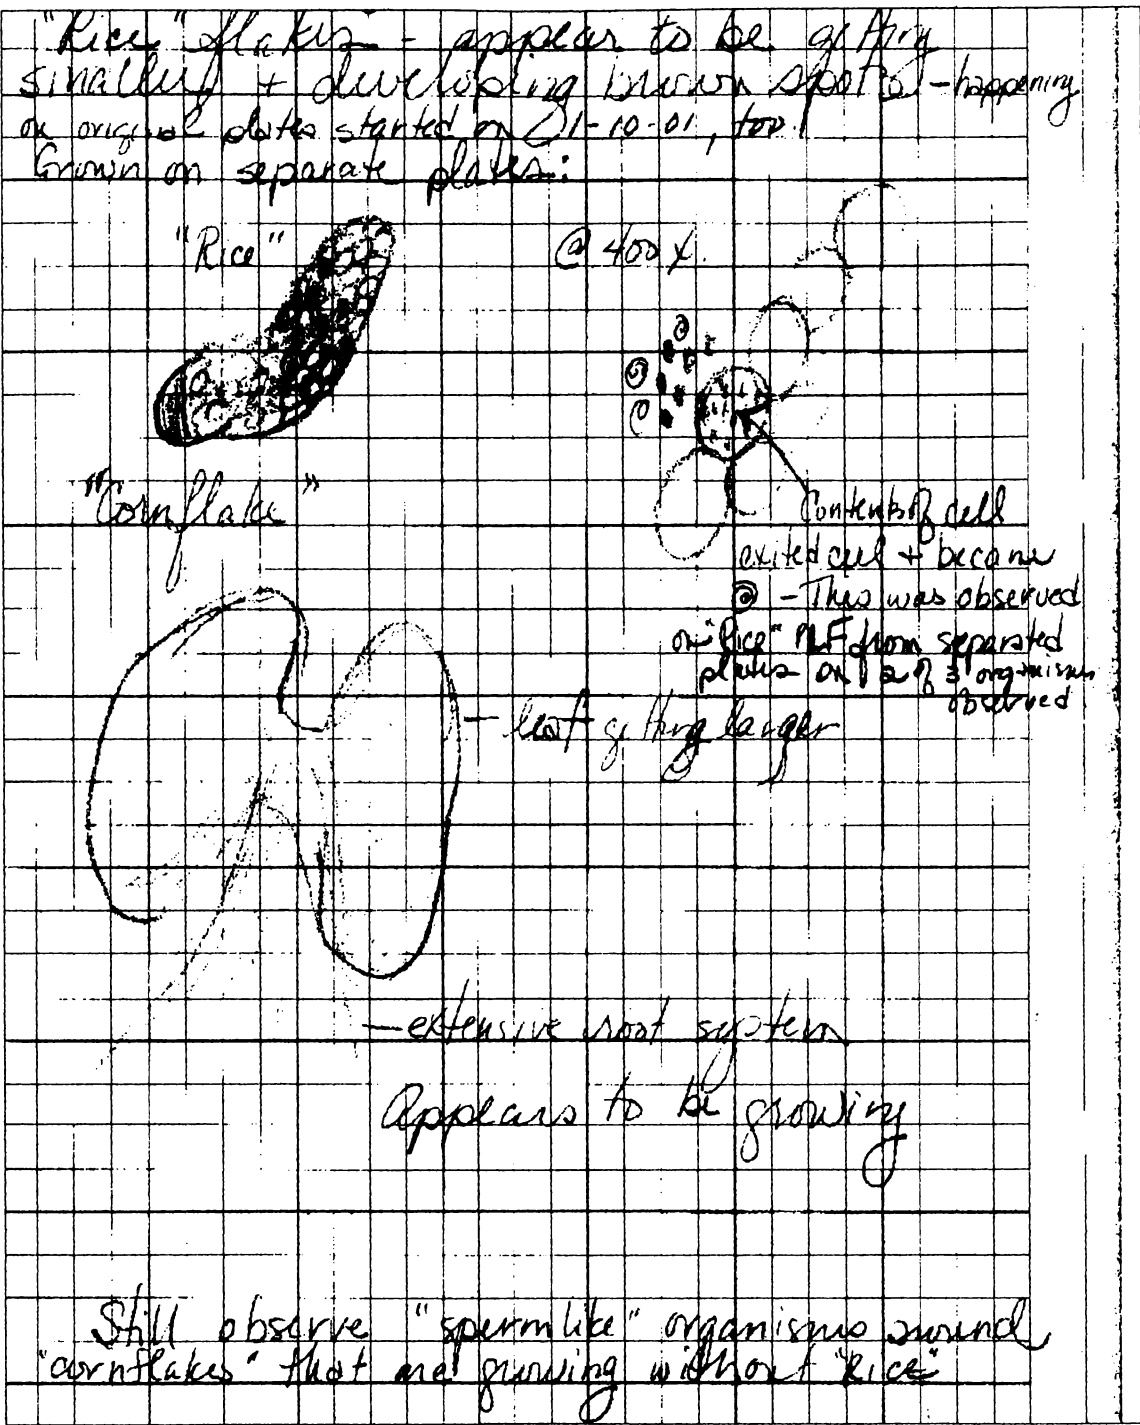 "Rice" flakes - appear to be getting
smaller + developing brown spots - happening
on original plates started on 01-10-01, too!
Grown on separate plates:
"Rice"
@ 400 X.
"Cornflake"
Contents of cell
exited cell + became
- This was observed
on "Rice" from separated
plates on 2 of 3 organisms
observed
- leaf getting larger
- extensive root system
Appears to be growing
Still observe "spermlike" organisms around
"cornflakes" that are growing without "Rice"